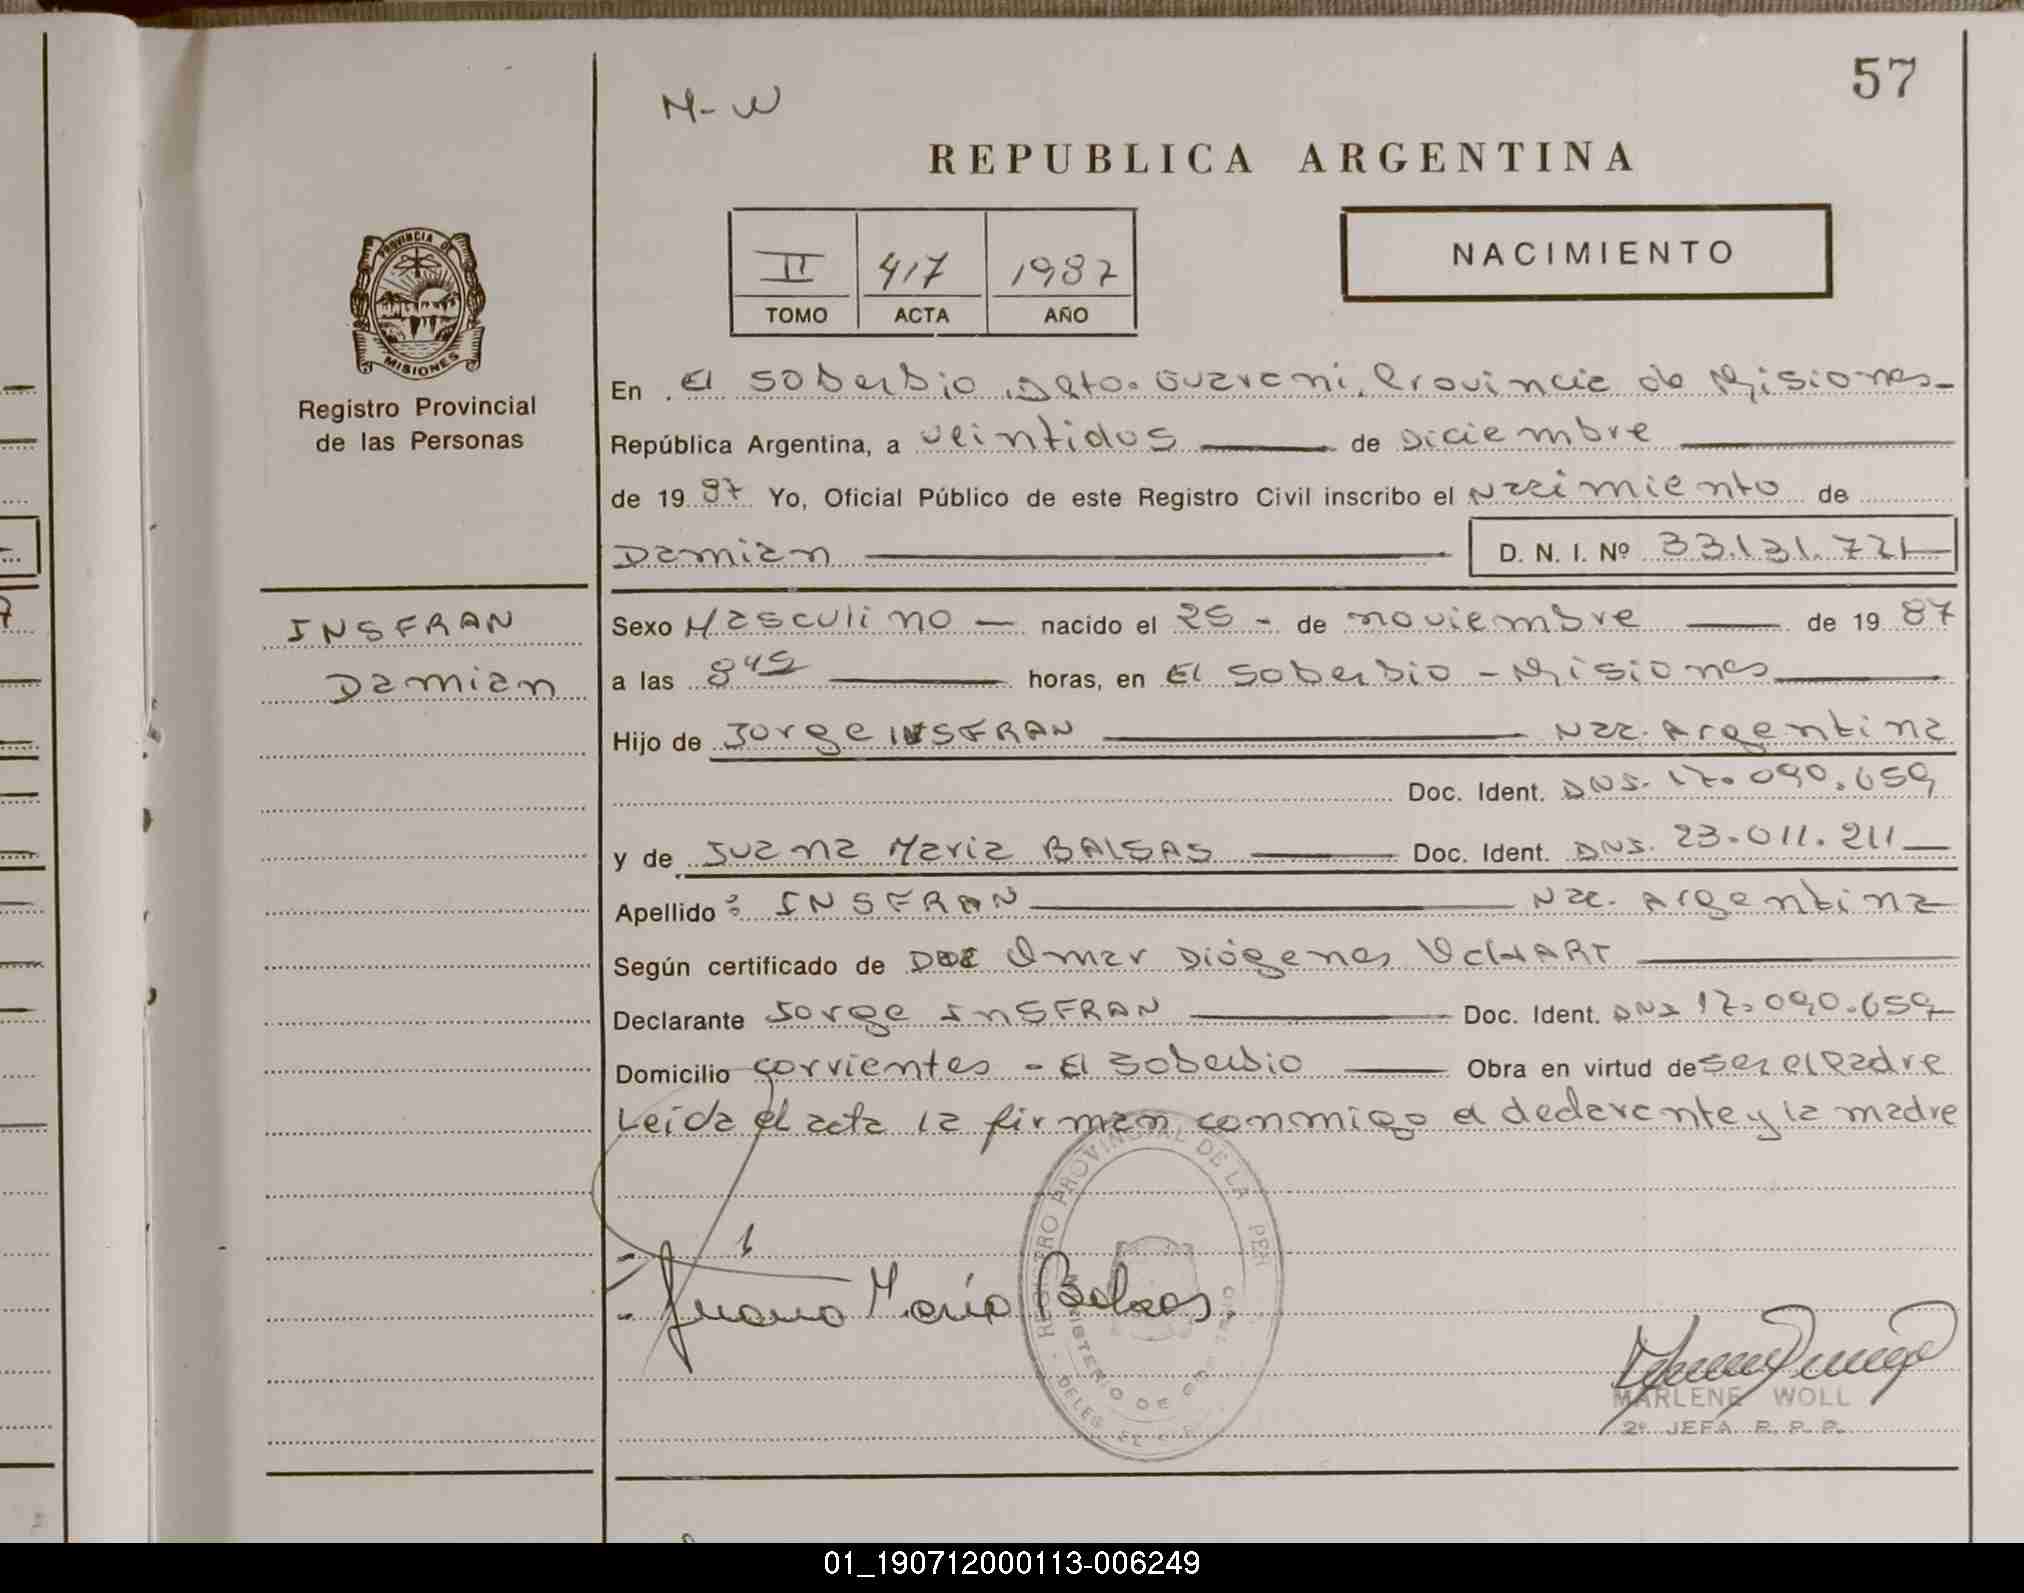 57
M-W
REPUBLICA ARGENTINA
PROVINCIA DE
MISIONES
Registro Provincial
de las Personas
II 417 1987
TOMO ACTA AÑO
NACIMIENTO
En El Soberbio, Dpto. Guarani, Provincia de Misiones-
República Argentina, a veintidos de Diciembre
de 19 87 Yo, Oficial Público de este Registro Civil inscribo el Nacimiento de
Damian D. N. I. Nº 33.131.721
INSFRAN
Damian
Sexo Masculino nacido el 25 - de noviembre de 19 87
a las 8 45 horas, en El Soberbio - Misiones
Hijo de Jorge INSFRAN Nac. Argentina
Doc. Ident. DNI. 17.090.659
y de Juana Maria BALSAS Doc. Ident. DNI. 23.011.211
Apellido: INSFRAN Nac. Argentina
Según certificado de Omar Diógenes
Declarante Jorge INSFRAN Doc. Ident. DNI 17.090.659
Domicilio Corrientes - El Soberbio Obra en virtud de ser el Padre
Leida el acta la firman conmigo el declarante y la madre
REGISTRO PROVINCIAL DE LA PER
MINISTERIO DE
Juana María Balsas.
MARLENE WOLL
2º JEFA R. P. P.
01_190712000113-006249